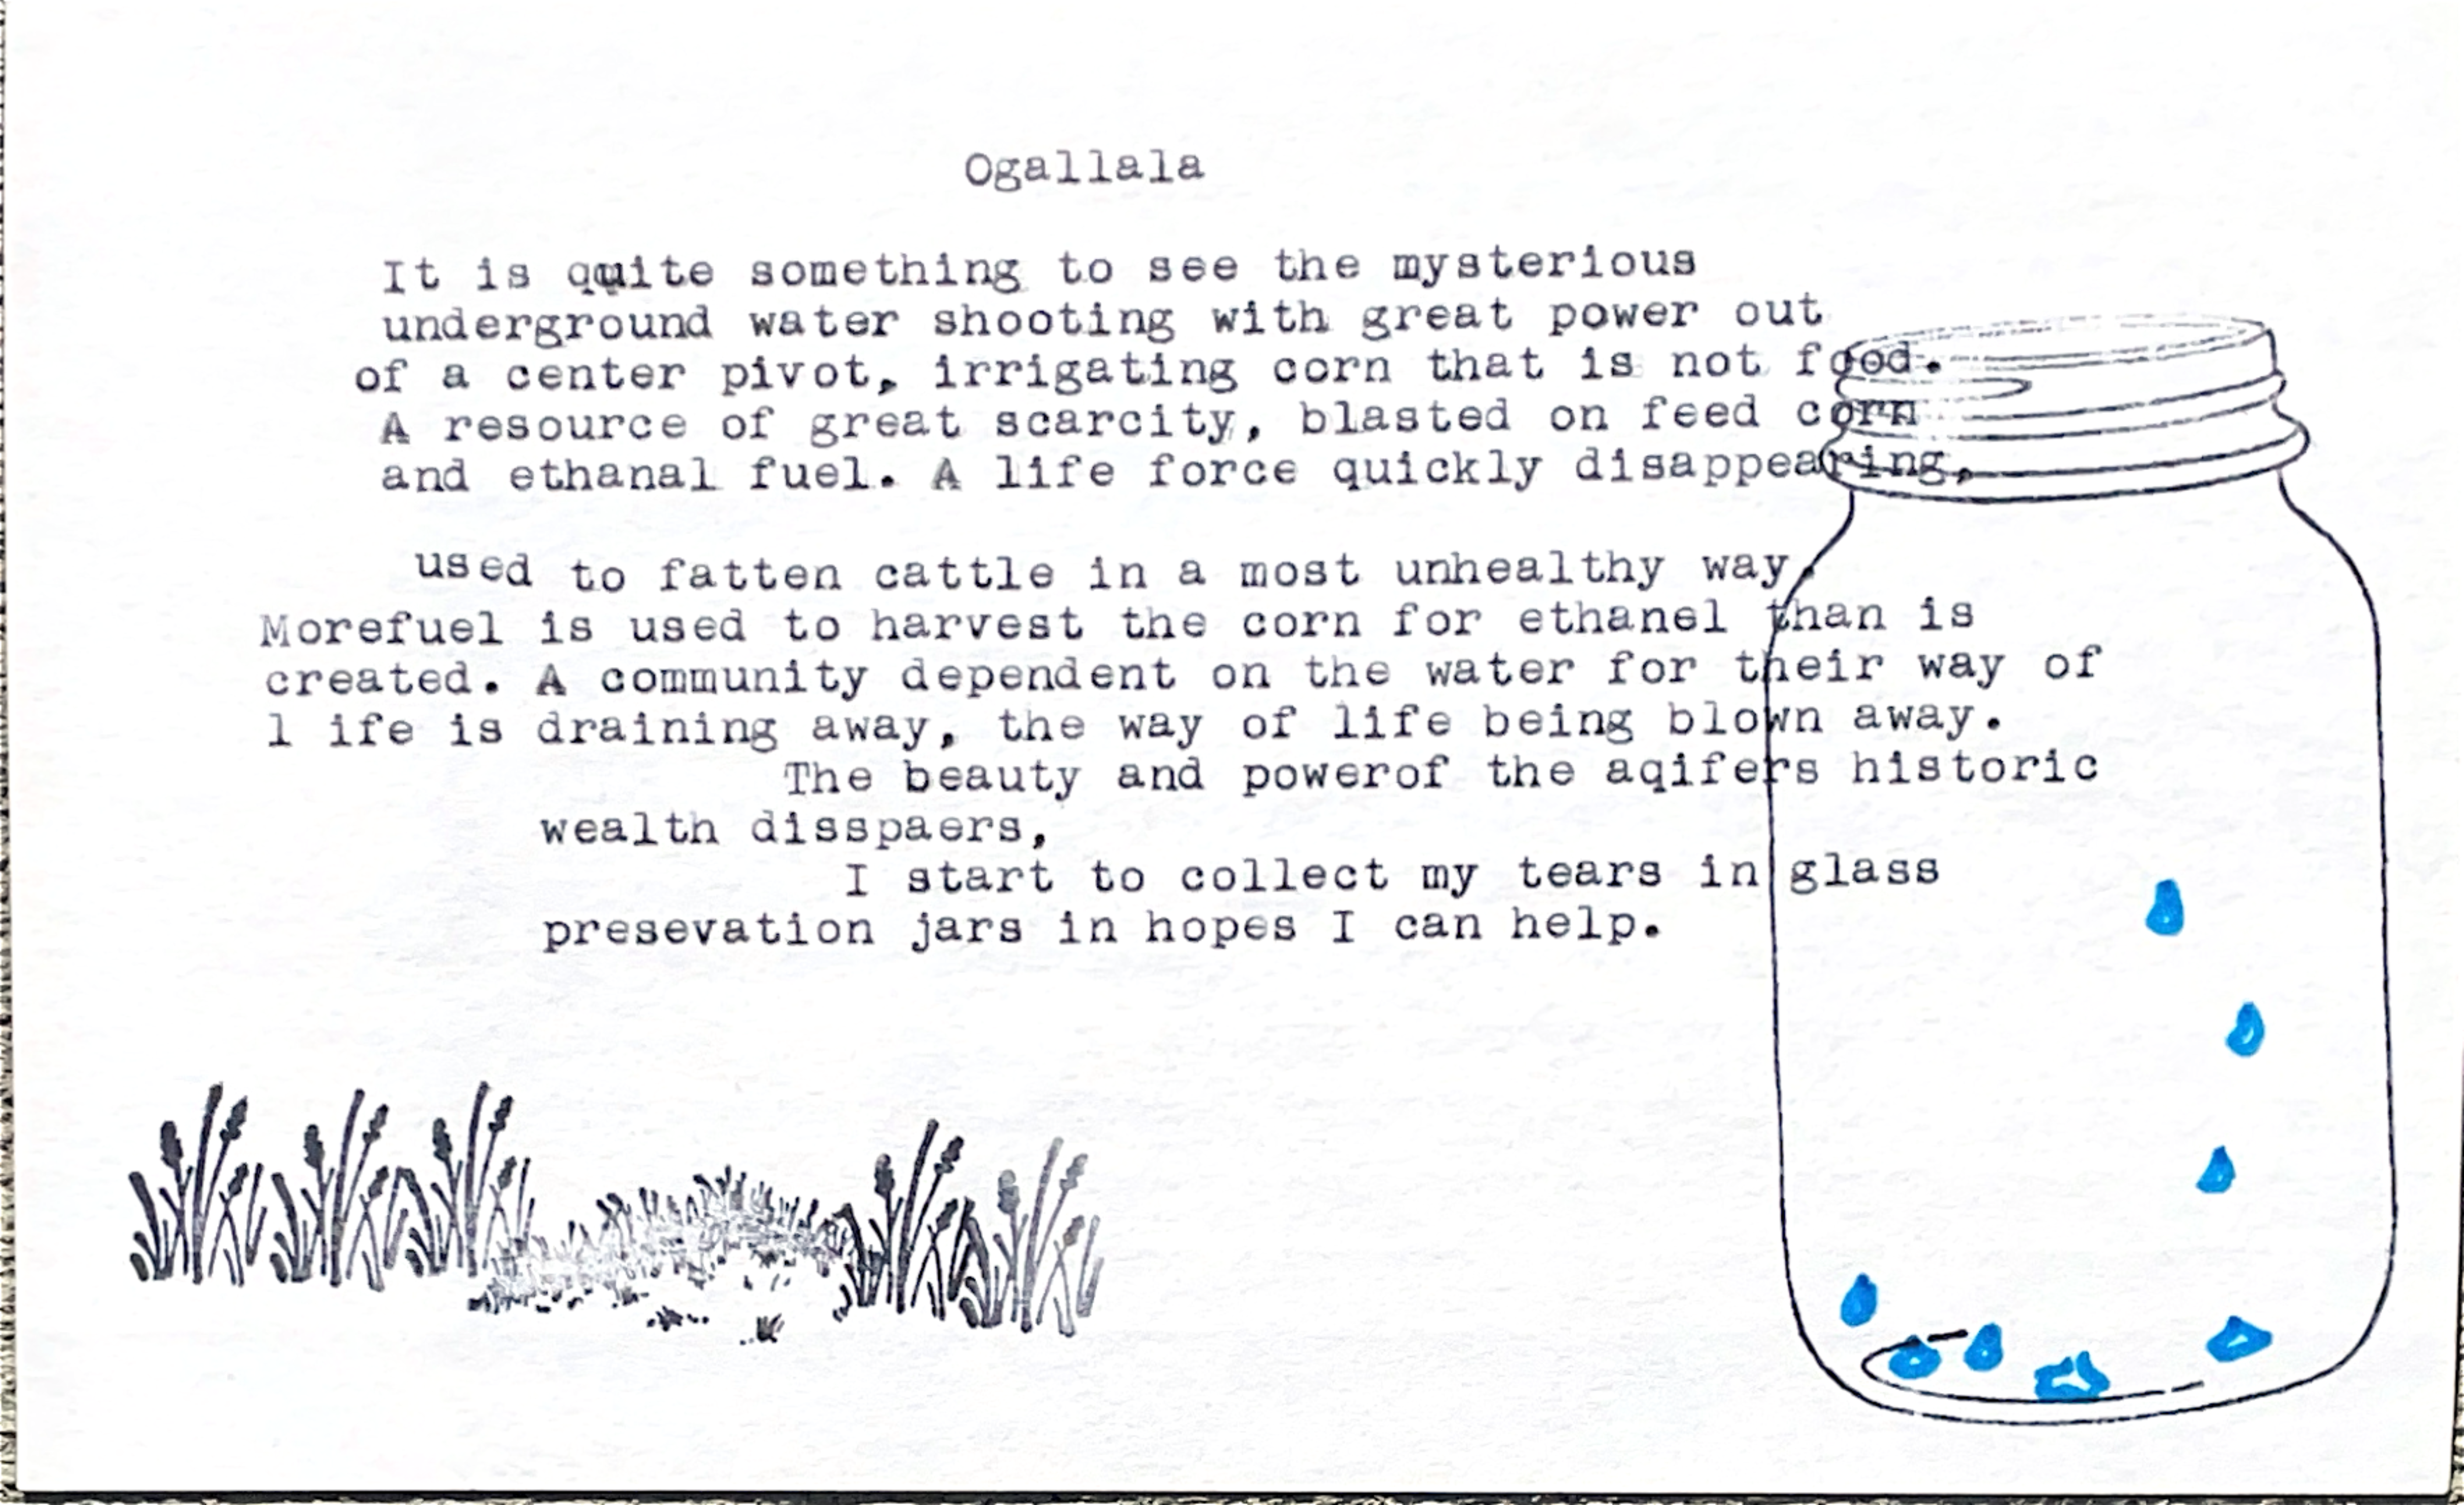 Ogallala
It is quite something to see the mysterious
underground water shooting with great power out
of a center pivot, irrigating corn that is not food.
A resource of great scarcity, blasted on feed corn
and ethanal fuel. A life force quickly disappearing,
used to fatten cattle in a most unhealthy way.
Morefuel is used to harvest the corn for ethanel than is
created. A community dependent on the water for their way of
l ife is draining away, the way of life being blown away.
The beauty and powerof the aqifers historic
wealth disspaers,
I start to collect my tears in glass
presevation jars in hopes I can help.